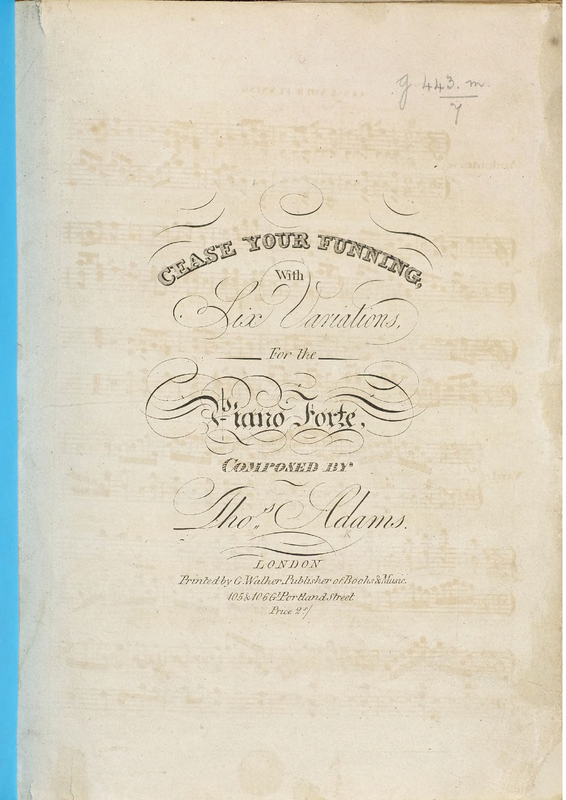 g 443. m.
7
CEASE YOUR FUNNING,
With
Six Variations,
For the
Piano Forte,
COMPOSED BY
Tho.s Adams.
LONDON
Printed by G. Walker, Publisher of Books & Music.
105 & 106 Gt. Portland Street
Price 2s/